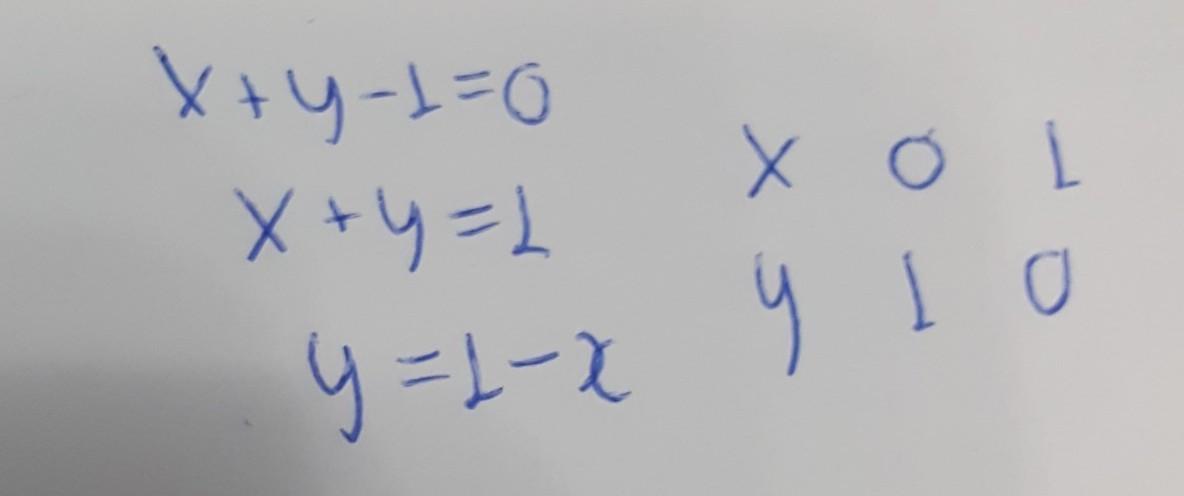 x+y-1=0
x+y=1
y=1-x
x 0 1
y 1 0